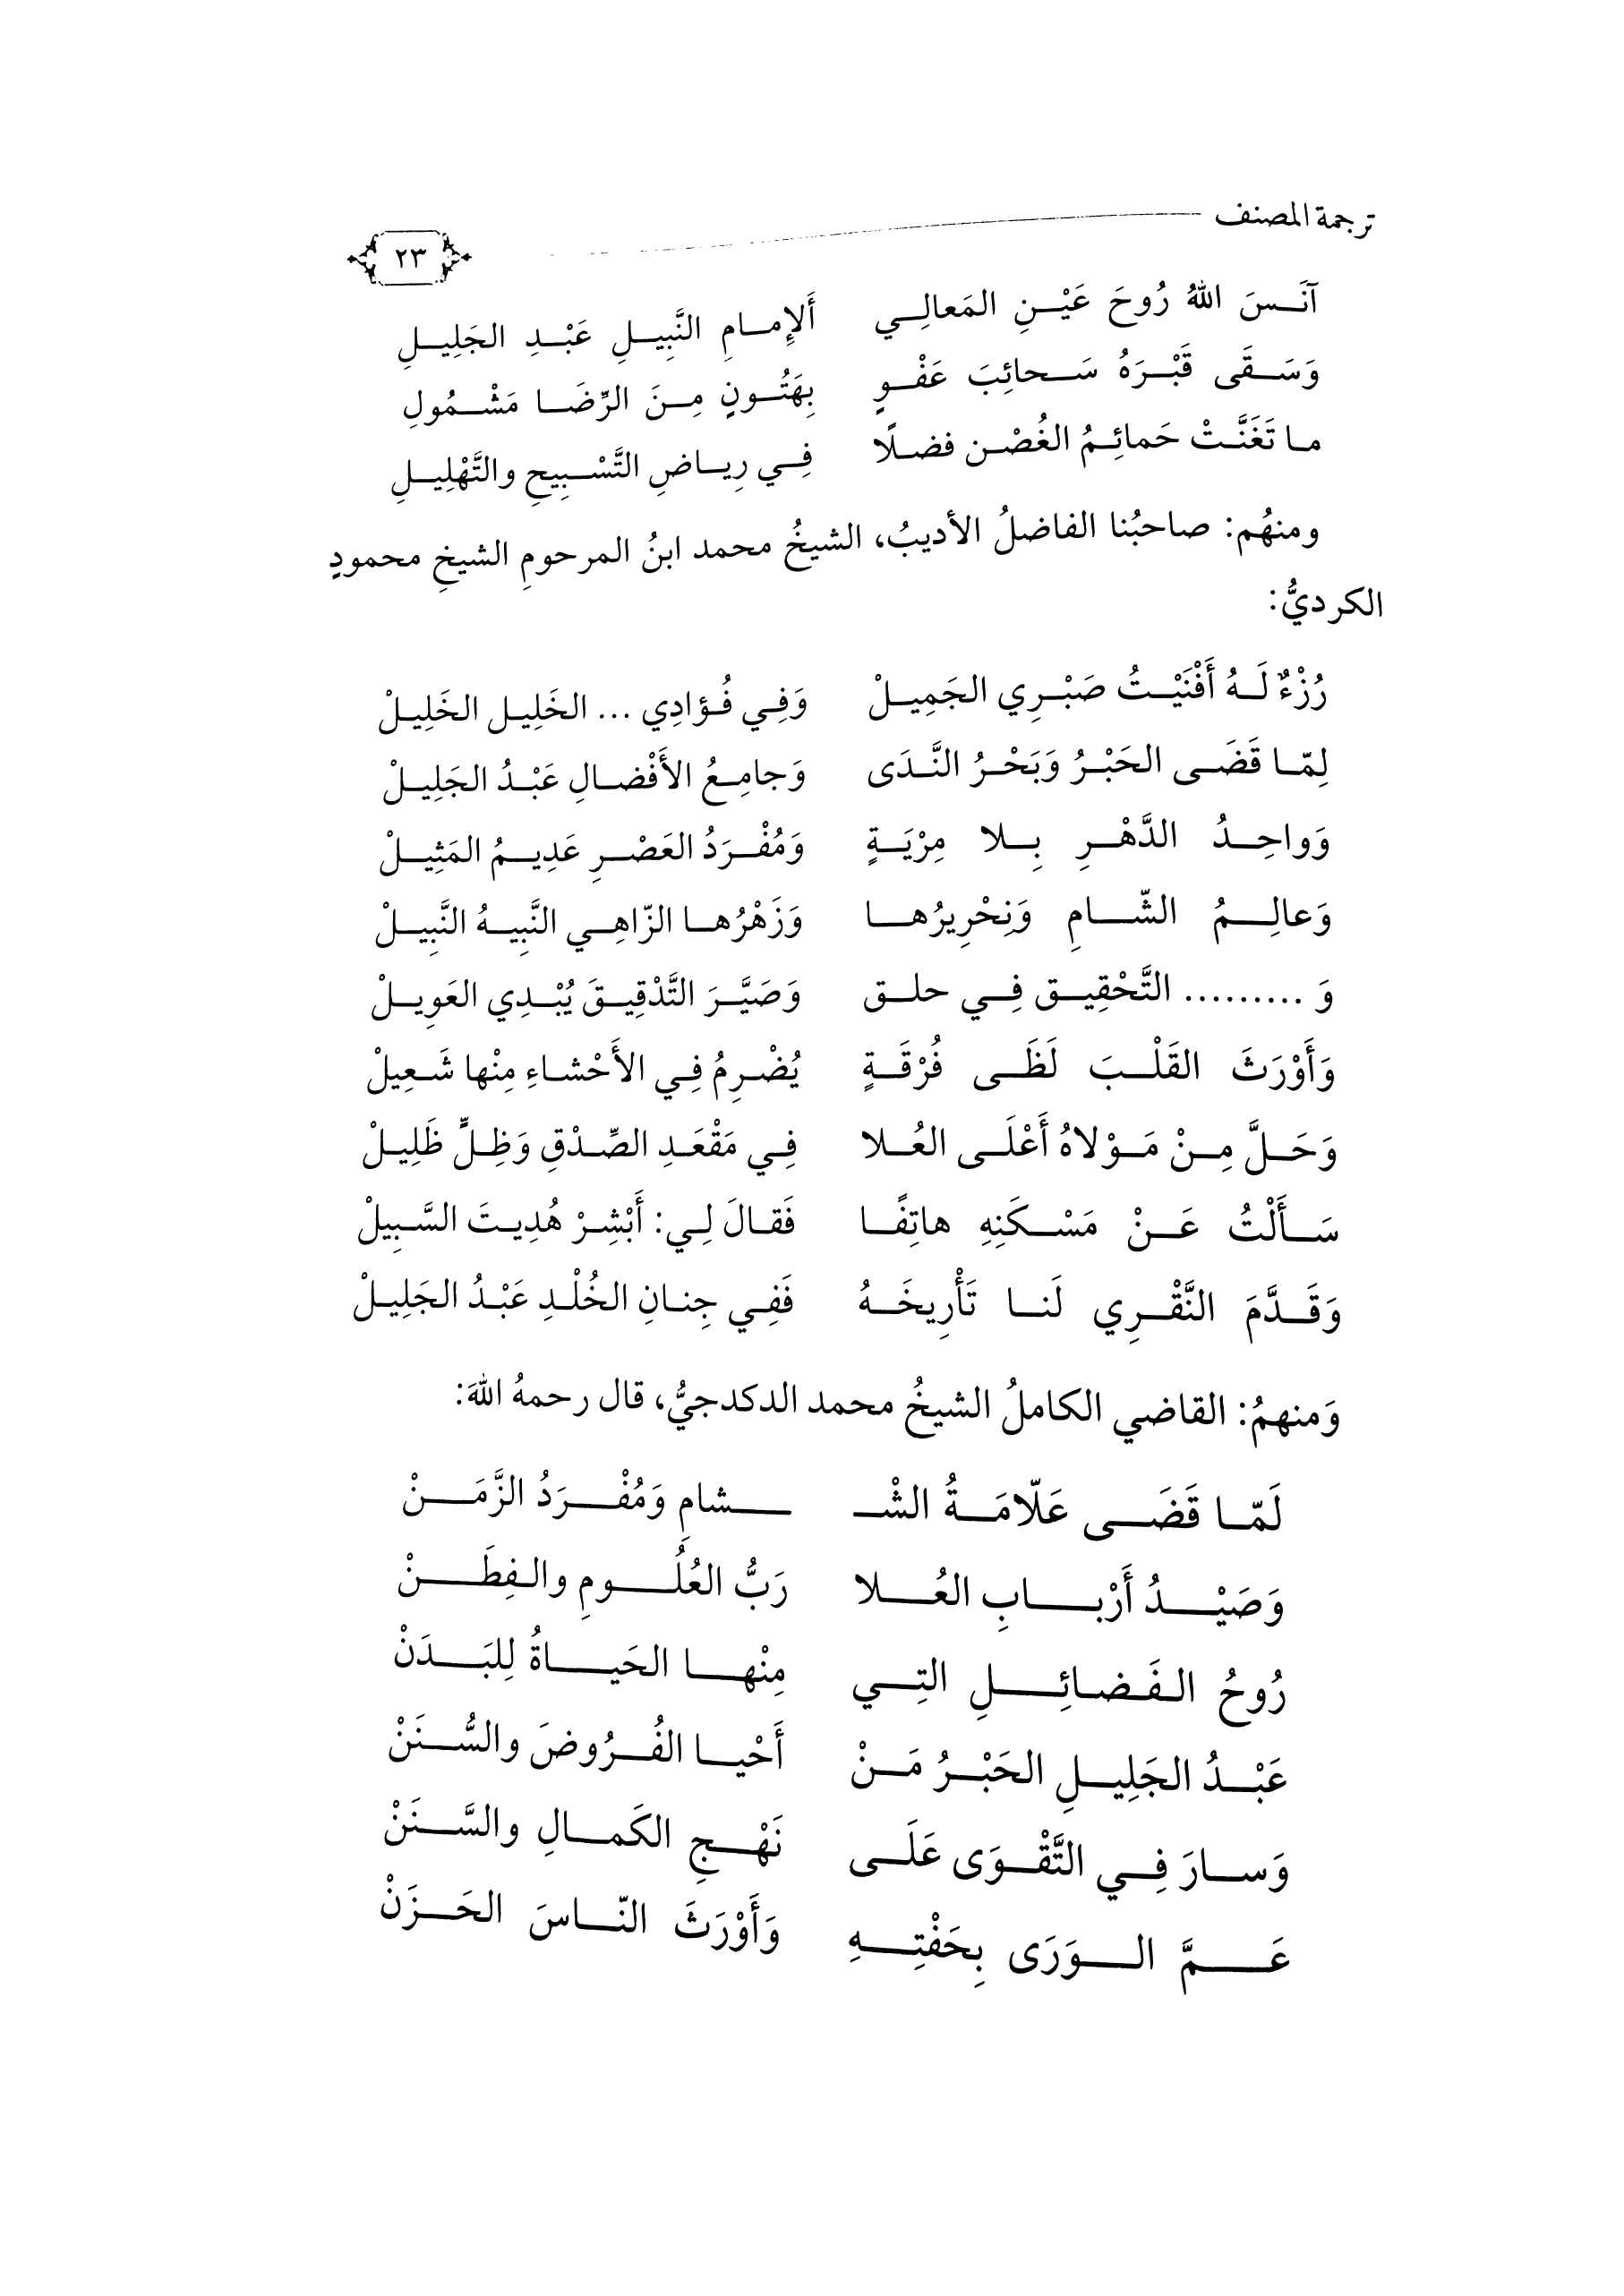 ترجمة المصنف
٢٣
آنَسَ اللهُ رُوحَ عَيْنِ المَعالِي أَلإِمامِ النَّبِيلِ عَبْدِ الجَلِيلِ
وَسَقَى قَبْرَهُ سَحائِبَ عَفْوٍ بِهَتُونٍ مِنَ الرِّضَا مَشْمُولِ
ما تَغَنَّتْ حَمائِمُ الغُصْن فضلًا فِي رِياضِ التَّسْبِيحِ والتَّهْلِيلِ
ومنهُم: صاحبُنا الفاضلُ الأديبُ، الشيخُ محمد ابنُ المرحومِ الشيخِ محمودٍ
الكرديُّ:
رُزْءٌ لَهُ أَفْنَيْتُ صَبْرِي الجَمِيلْ وَفِي فُؤادِي ... الخَلِيل الخَلِيلْ
لِمّا قَضَى الحَبْرُ وَبَحْرُ النَّدَى وَجامِعُ الأَفْضالِ عَبْدُ الجَلِيلْ
وَواحِدُ الدَّهْرِ بِلا مِرْيَةٍ وَمُفْرَدُ العَصْرِ عَدِيمُ المَثِيلْ
وَعالِمُ الشّامِ وَنِحْرِيرُها وَزَهْرُها الزّاهِي النَّبِيهُ النَّبِيلْ
وَ ......... التَّحْقِيق فِي حلق وَصَيَّرَ التَّدْقِيقَ يُبْدِي العَوِيلْ
وَأَوْرَثَ القَلْبَ لَظَى فُرْقَةٍ يُضْرِمُ فِي الأَحْشاءِ مِنْها شَعِيلْ
وَحَلَّ مِنْ مَوْلاهُ أَعْلَى العُلا فِي مَقْعَدِ الصِّدْقِ وَظِلٍّ ظَلِيلْ
سَأَلْتُ عَنْ مَسْكَنِهِ هاتِفًا فَقالَ لِي: أَبْشِرْ هُدِيتَ السَّبِيلْ
وَقَدَّمَ النَّقْرِي لَنا تَأْرِيخَهُ فَفِي جِنانِ الخُلْدِ عَبْدُ الجَلِيلْ
وَمنهمُ: القاضي الكاملُ الشيخُ محمد الدكدجيُّ، قال رحمهُ اللهَ:
لَمّا قَضَى عَلّامَةُ الشْـ ـشامِ وَمُفْرَدُ الزَّمَنْ
وَصَيْدُ أَرْبابِ العُلا رَبُّ العُلُومِ والفِطَنْ
رُوحُ الفَضائِلِ التِي مِنْها الحَياةُ لِلبَدَنْ
عَبْدُ الجَلِيلِ الحَبْرُ مَنْ أَحْيا الفُرُوضَ والسُّنَنْ
وَسارَ فِي التَّقْوَى عَلَى نَهْجِ الكَمالِ والسَّنَنْ
عَمَّ الوَرَى بِحَفْتِهِ وَأَوْرَثَ النّاسَ الحَزَنْ